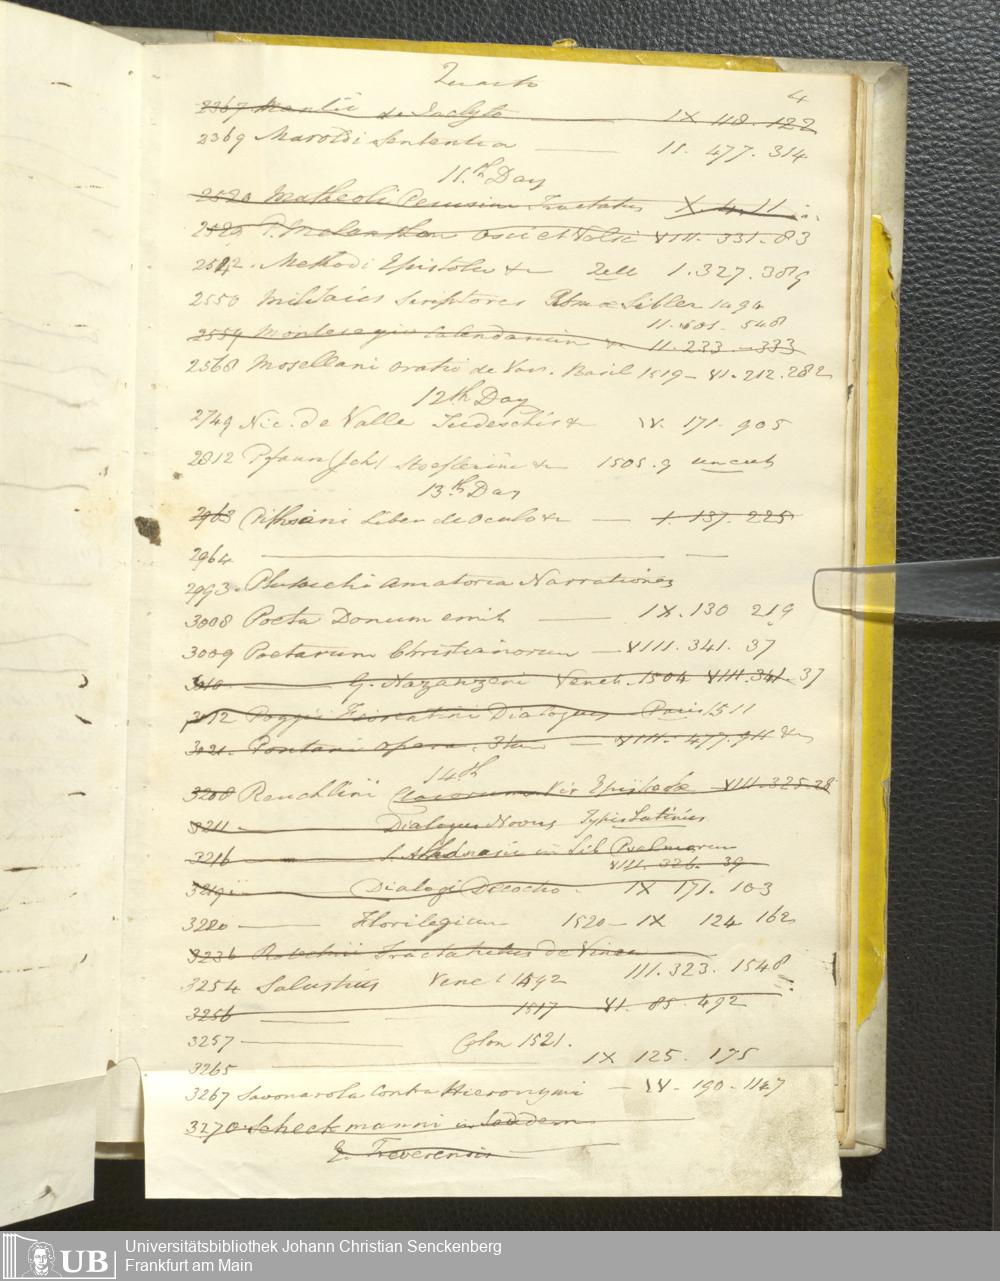 Quarto
4
2367 Mantis de Inclyto IX 118. 122
2369 Maroldi Sententia 11. 477. 314
11th Day
2520 Matheoli Perusini Tractatus X 4. 11
P. Melanthon 331. 83
2542. Methodi Epistola & 1. 327. 389
2550 Militaris Scriptores Romæ Silber 1494
11. 601. 548
2559 Monteregio Calendarium & 11. 233. 333
2568 Mosellani Oratio de Var. Basil 1519 - VI. 212. 282
12th Day
2749 Nic. de Valle Tedeschis & IV. 171. 905
2812 Pfaum (Joh) Stoeflerini & 1505. 9 uncut
13th Day
2963 Pithsani Liber de Oculo & 1. 137. 225
2964
2993. Plutarchi Amatoria Narrationes
3008 Poeta Donum emit IX. 130 219
3009 Poetarum Christianorum VIII. 341. 37
3010 G. Nazanzeni Venet. 1504 VIII. 341. 37
3012 Poggii Fiorentini Dialogus Paris 1511
3021. Pontani Opera. VIII. 477. 911 &
14th
3208 Reuchlini Clarorum Vir Epistolæ VIII. 325. 28
3211 Dialogus Novus Typis Latinis
3216 S. Athanasii in Lib Psalmorum
VIII. 326. 39
3219 Dialogi Decocho IX 171. 103
3220 Florilegium 1520 - IX 124 162
3236 Tractatulus De Vineu
3254 Salustius Venet 1492 111. 323. 1548
3256 1517 VI. 85. 492
3257 Colon 1521.
3265 IX 125. 175
3267 Savonarola Contra Hieronymi IV. 190. 1147
3270 Scheckmanni in Laudem
E. Treverensis
UB Universitätsbibliothek Johann Christian Senckenberg
Frankfurt am Main